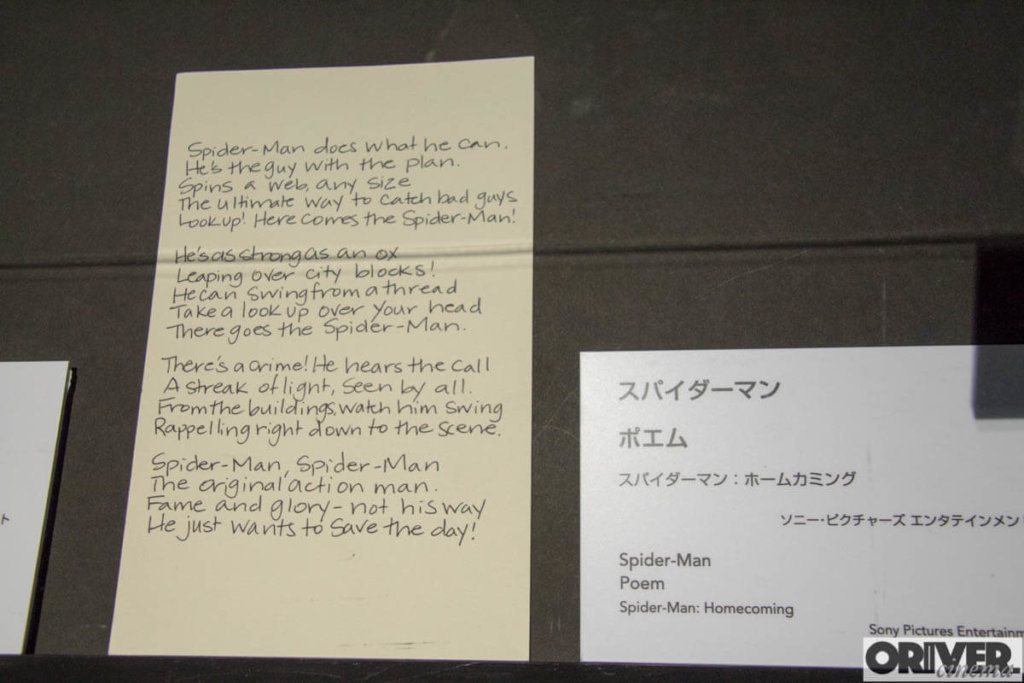 Spider-Man does what he can.
He's the guy with the plan.
Spins a web, any size
The ultimate way to catch bad guys
Look up! Here comes the Spider-Man!
He's as strong as an ox
Leaping over city blocks!
He can swing from a thread
Take a look up over your head
There goes the Spider-Man.
There's a crime! He hears the call
A streak of light, seen by all.
From the buildings, watch him swing
Rappelling right down to the scene.
Spider-Man, Spider-Man
The original action man.
Fame and glory - not his way
He just wants to save the day!
ト
スパイダーマン
ポエム
スパイダーマン：ホームカミング
ソニー・ピクチャーズ エンタテインメン
Spider-Man
Poem
Spider-Man: Homecoming
Sony Pictures Entertainm
ORIVER.
cinema